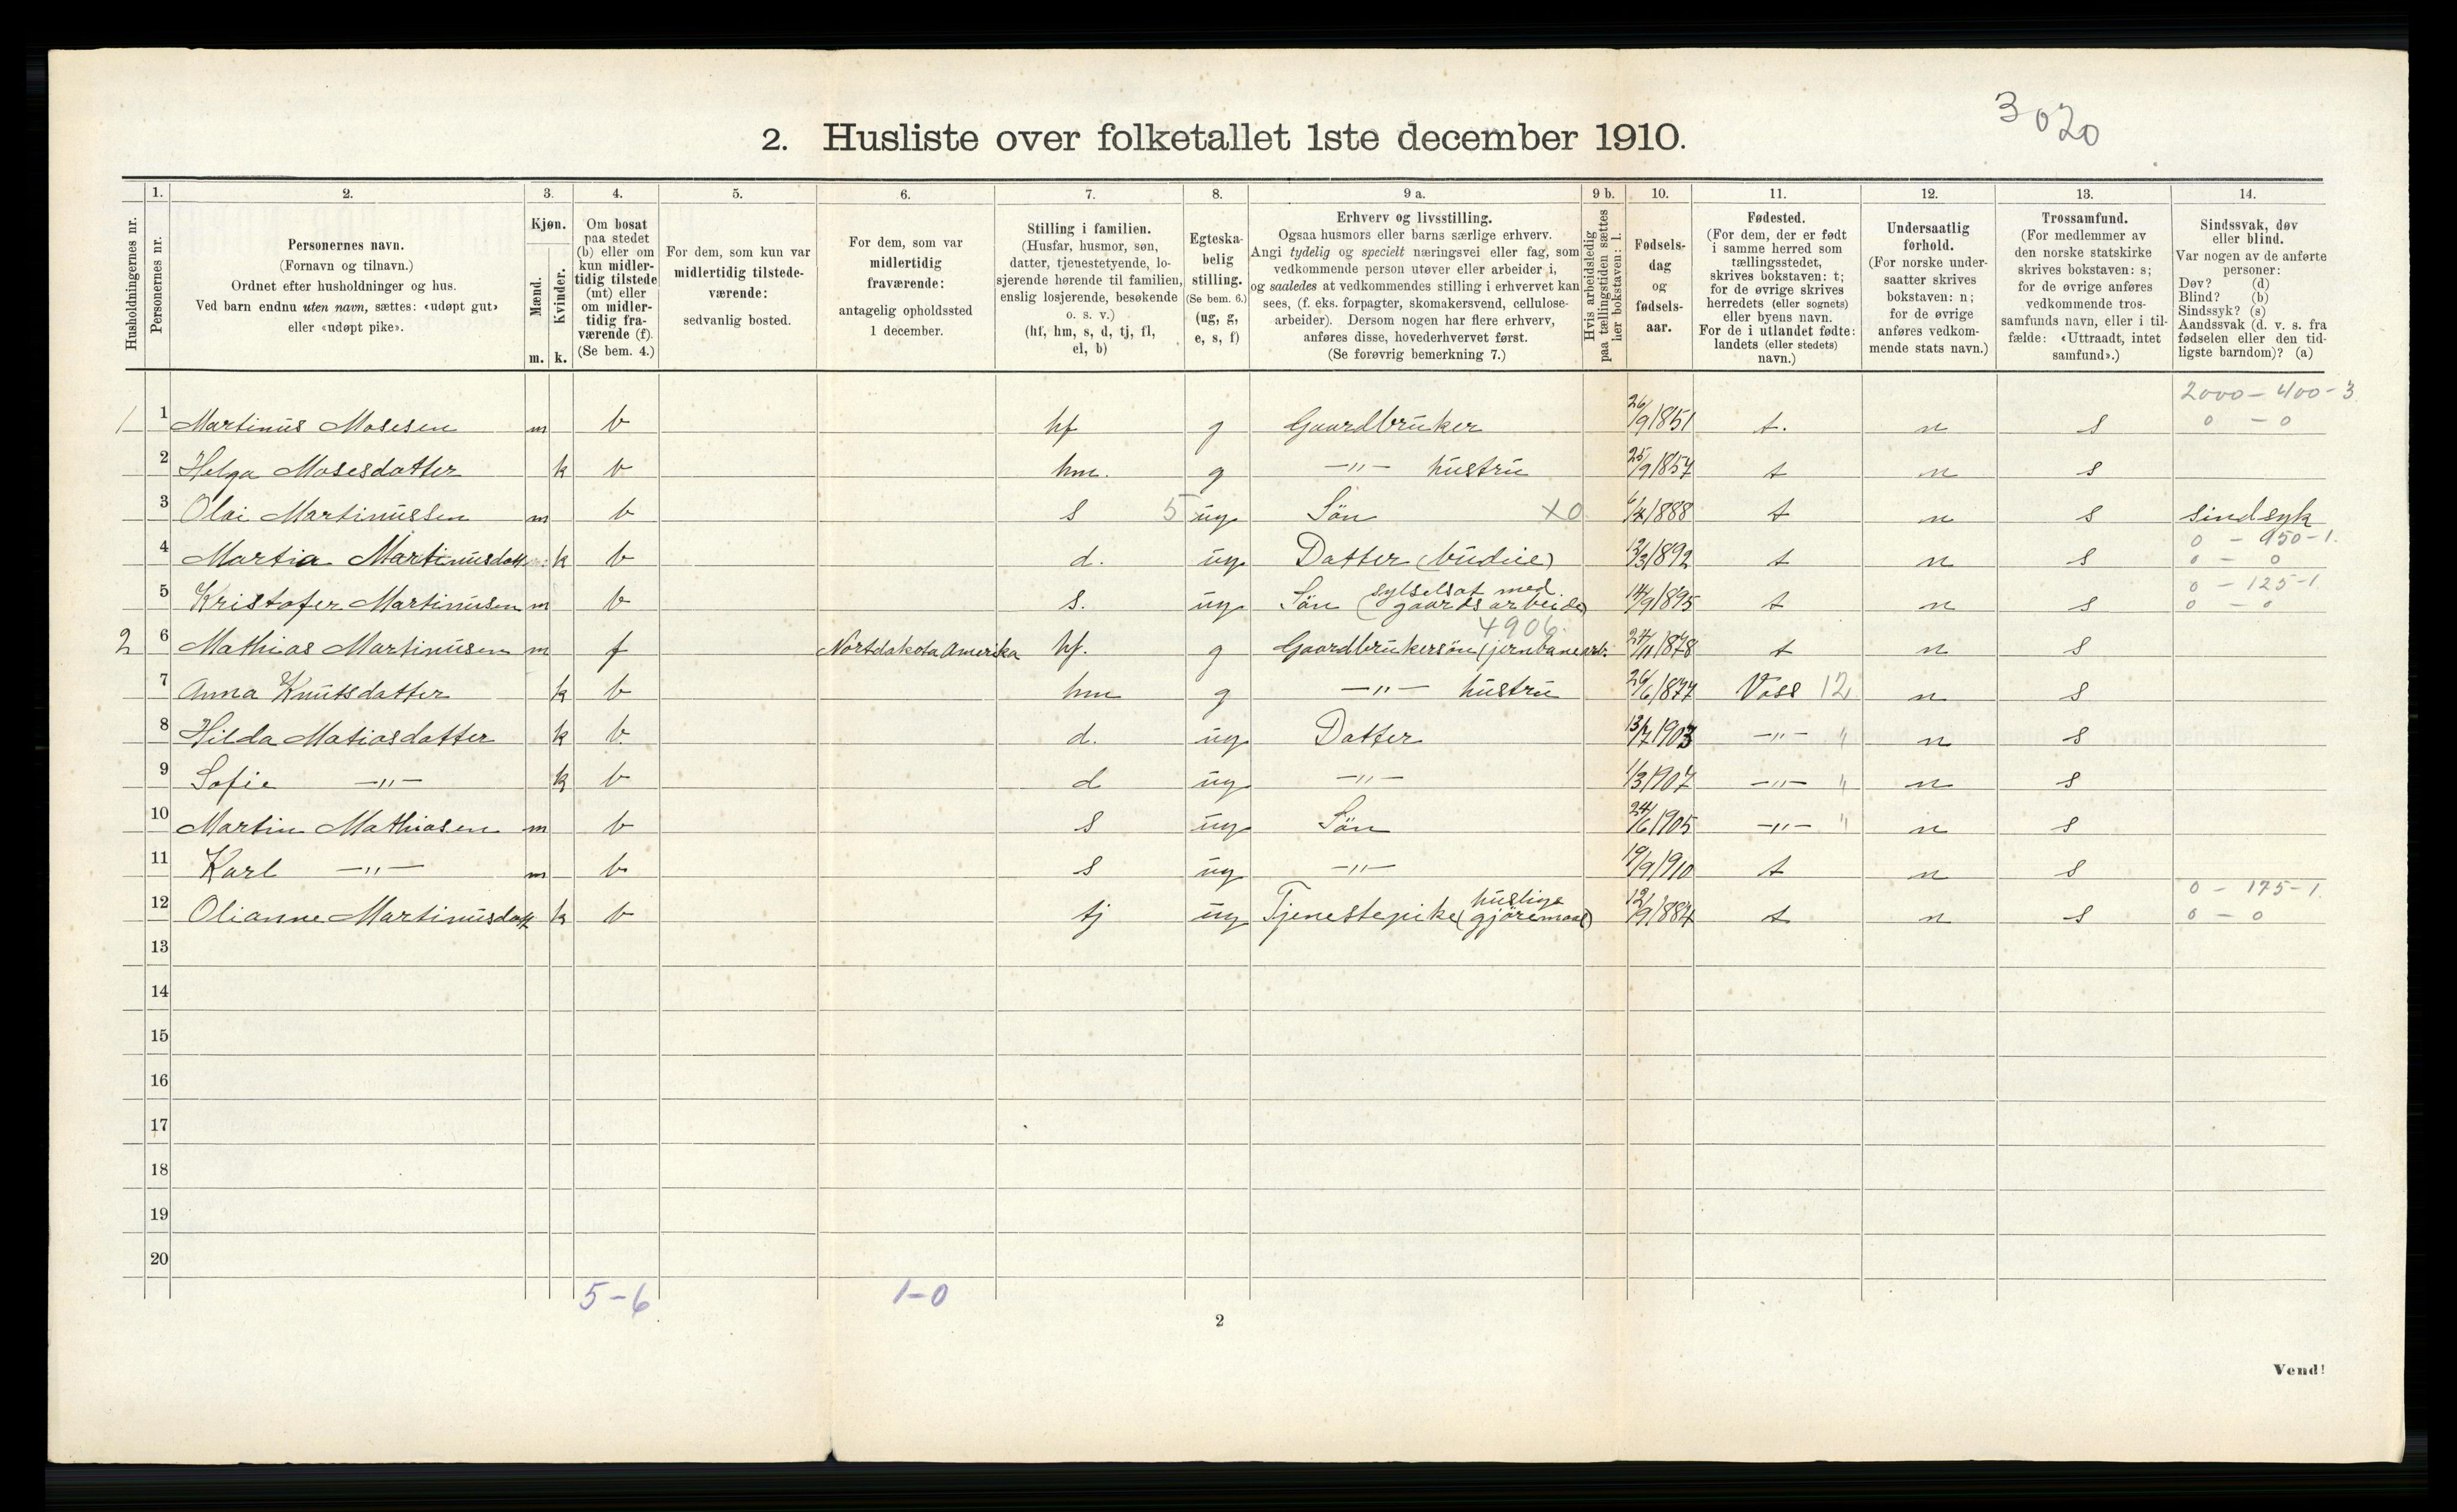 3020
2. Husliste over folketallet 1ste december 1910.
Husholdningernes nr.
1. Personernes nr.
2. Personernes navn.
(Fornavn og tilnavn.)
Ordnet efter husholdninger og hus.
Ved barn endnu uten navn, sættes: «udøpt gut»
eller «udøpt pike».
3. Kjøn.
Mænd. m.
Kvinder. k.
4. Om bosat
paa stedet
(b) eller om
kun midler-
tidig tilstede
(mt) eller
om midler-
tidig fra-
værende (f).
(Se bem. 4.)
5. For dem, som kun var
midlertidig tilstede-
værende:
sedvanlig bosted.
6. For dem, som var
midlertidig
fraværende:
antagelig opholdssted
1 december.
7. Stilling i familien.
(Husfar, husmor, søn,
datter, tjenestetyende, lo-
sjerende hørende til familien,
enslig losjerende, besøkende
o. s. v.)
(hf, hm, s, d, tj, fl,
el, b)
8. Egteska-
belig
stilling.
(Se bem. 6.)
(ug, g,
e, s, f)
9 a. Erhverv og livsstilling.
Ogsaa husmors eller barns særlige erhverv.
Angi tydelig og specielt næringsvei eller fag, som
vedkommende person utøver eller arbeider i,
og saaledes at vedkommendes stilling i erhvervet kan
sees, (f. eks. forpagter, skomakersvend, cellulose-
arbeider). Dersom nogen har flere erhverv,
anføres disse, hovederhvervet først.
(Se forøvrig bemerkning 7.)
9 b. Hvis arbeidsledig
paa tællingstiden sættes
her bokstaven: l.
10. Fødsels-
dag
og
fødsels-
aar.
11. Fødested.
(For dem, der er født
i samme herred som
tællingsstedet,
skrives bokstaven: t;
for de øvrige skrives
herredets (eller sognets)
eller byens navn.
For de i utlandet fødte:
landets (eller stedets)
navn.)
12. Undersaatlig
forhold.
(For norske under-
saatter skrives
bokstaven: n;
for de øvrige
anføres vedkom-
mende stats navn.)
13. Trossamfund.
(For medlemmer av
den norske statskirke
skrives bokstaven: s;
for de øvrige anføres
vedkommende tros-
samfunds navn, eller i til-
fælde: «Uttraadt, intet
samfund».)
14. Sindssvak, døv
eller blind.
Var nogen av de anførte
personer:
Døv? (d)
Blind? (b)
Sindssyk? (s)
Aandssvak (d. v. s. fra
fødselen eller den tid-
ligste barndom)? (a)
2000 - 400 - 3
1 1 Martinus Mosesen m b hf g Gaardbruker 26/9 1851 t. n s 0 - 0
2 Helga Mosesdatter k b hm. g -"- hustru 25/9 1857 t n s
3 Olai Martinussen m b s 5 ug Sön X0 6/4 1888 t n s sindsyk
0 - 950 - 1.
4 Martia Martinusdatt k b d. ug Datter (budeie) 12/3 1892 t n s 0 - 0
sylselsat med 0 - 125 - 1
5 Kristofer Martinusen m b s. ug Sön (gaardsarbeide) 14/9 1895 t n s 0 - 0
4906.
2 6 Mathias Martinusen m f Nortdakota Amerika hf. g Gaardbrukersön (jernbanearb. 24/11 1878 t n s
7 Anna Knutsdatter k b hm g -"- hustru 26/6 1877 Voss 12 n s
8 Hilda Matiasdatter k b. d. ug Datter 13/7 1903 -"- " n s
9 Sofie -"- k b d ug -"- 1/3 1907 -"- " n s
10 Martin Mathiasen m b s ug Sön 24/6 1905 -"- " n s
11 Karl -"- m b s ug -"- 19/9 1910 t n s
huslige 0 - 175 - 1
12 Olianne Martinusdatt k b tj ug Tjenestepike (gjöremaal) 12/9 1884 t n s 0 - 0
13
14
15
16
17
18
19
20
5-6 1-0
2
Vend!